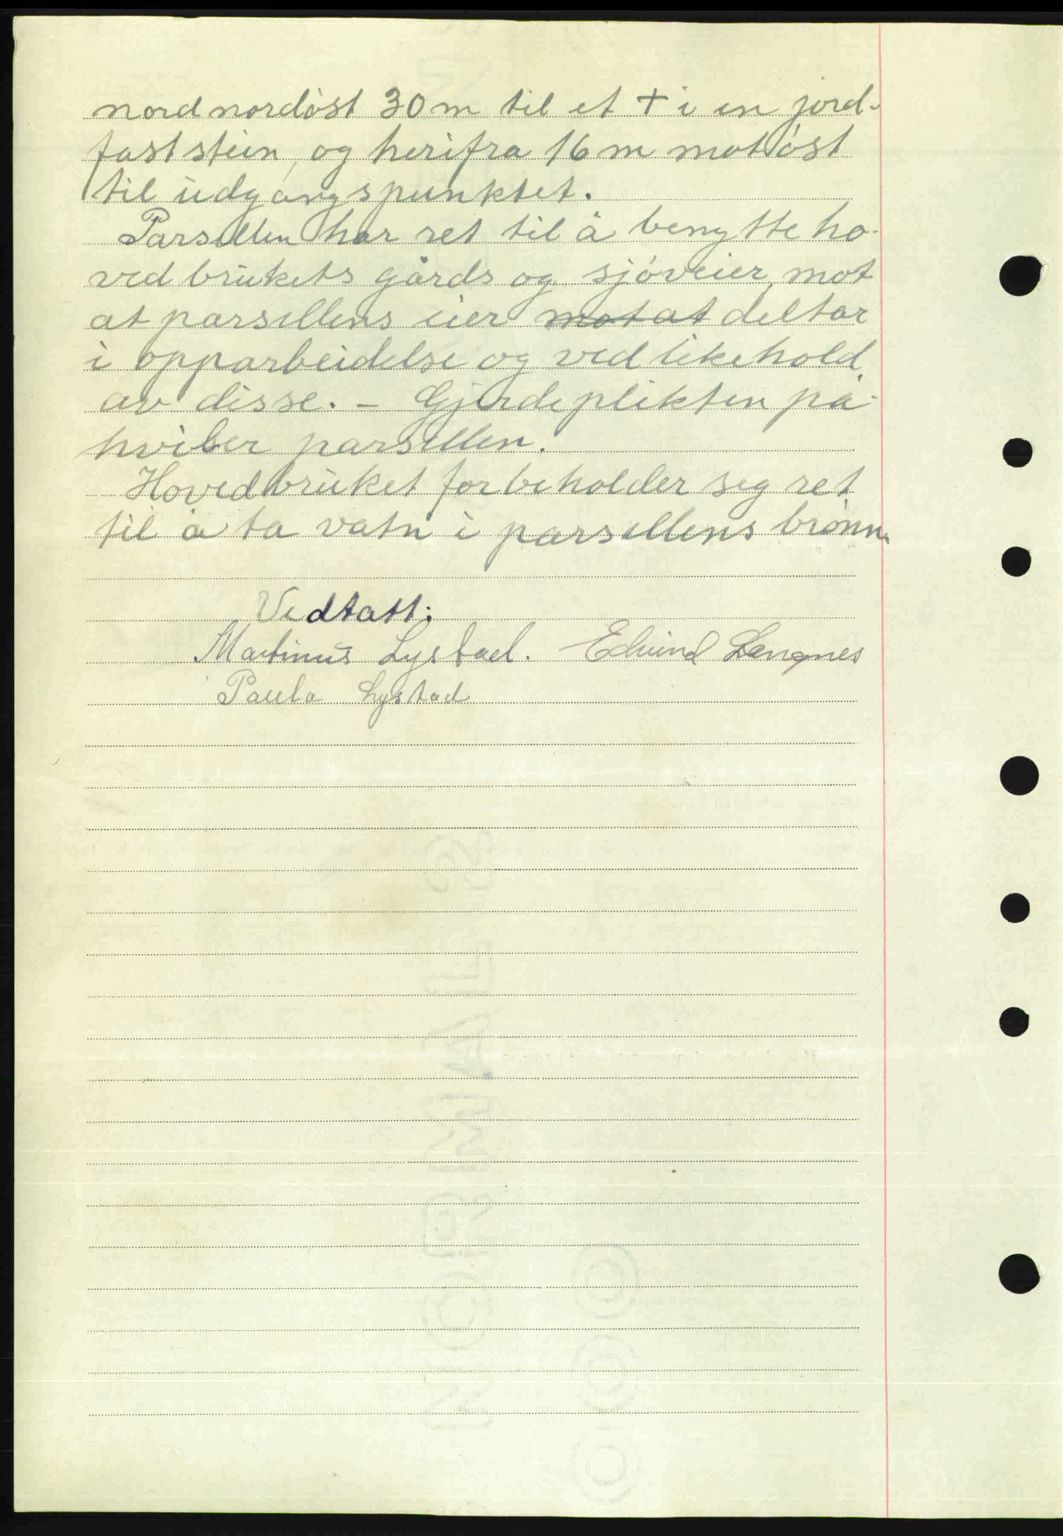 nordnordöst 30 m til et + i en jord-
fast stein, og herifra 16 m mot öst
til udgangspunktet.
Parsellen har ret til å benytte ho-
vedbrukets gårds og sjöveier, mot
at parsellens eier mot at deltar
i opparbeidelse og vedlikehold
av disse. - Gjerdeplikten på-
hviler parsellen.
Hovedbruket forbeholder seg ret
til å ta vatn i parsellens brönn.
Vedtatt:
Martinus Lystad. Edvind Langnes
Paula Lystad
NORMAL